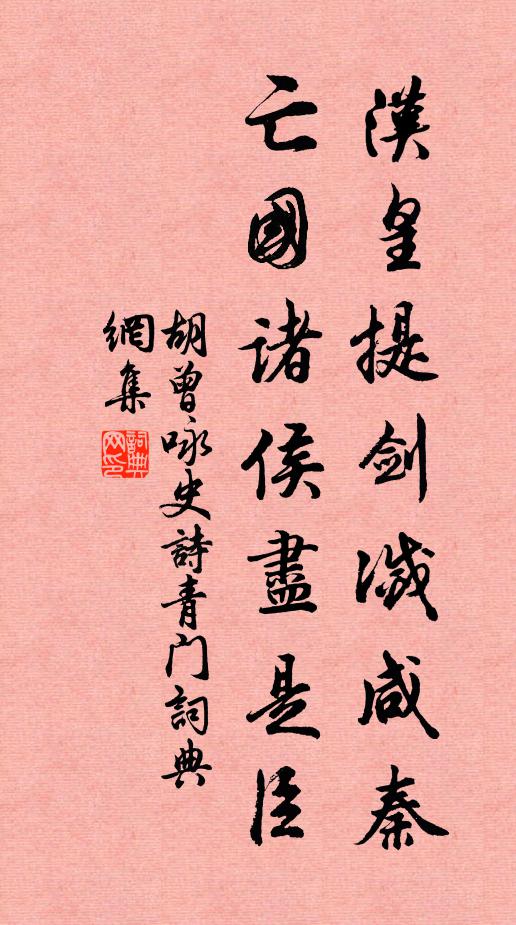 漢皇提劍滅咸秦
亡國諸侯盡是臣
胡曾咏史詩青门詞典
網集
詞典
网印